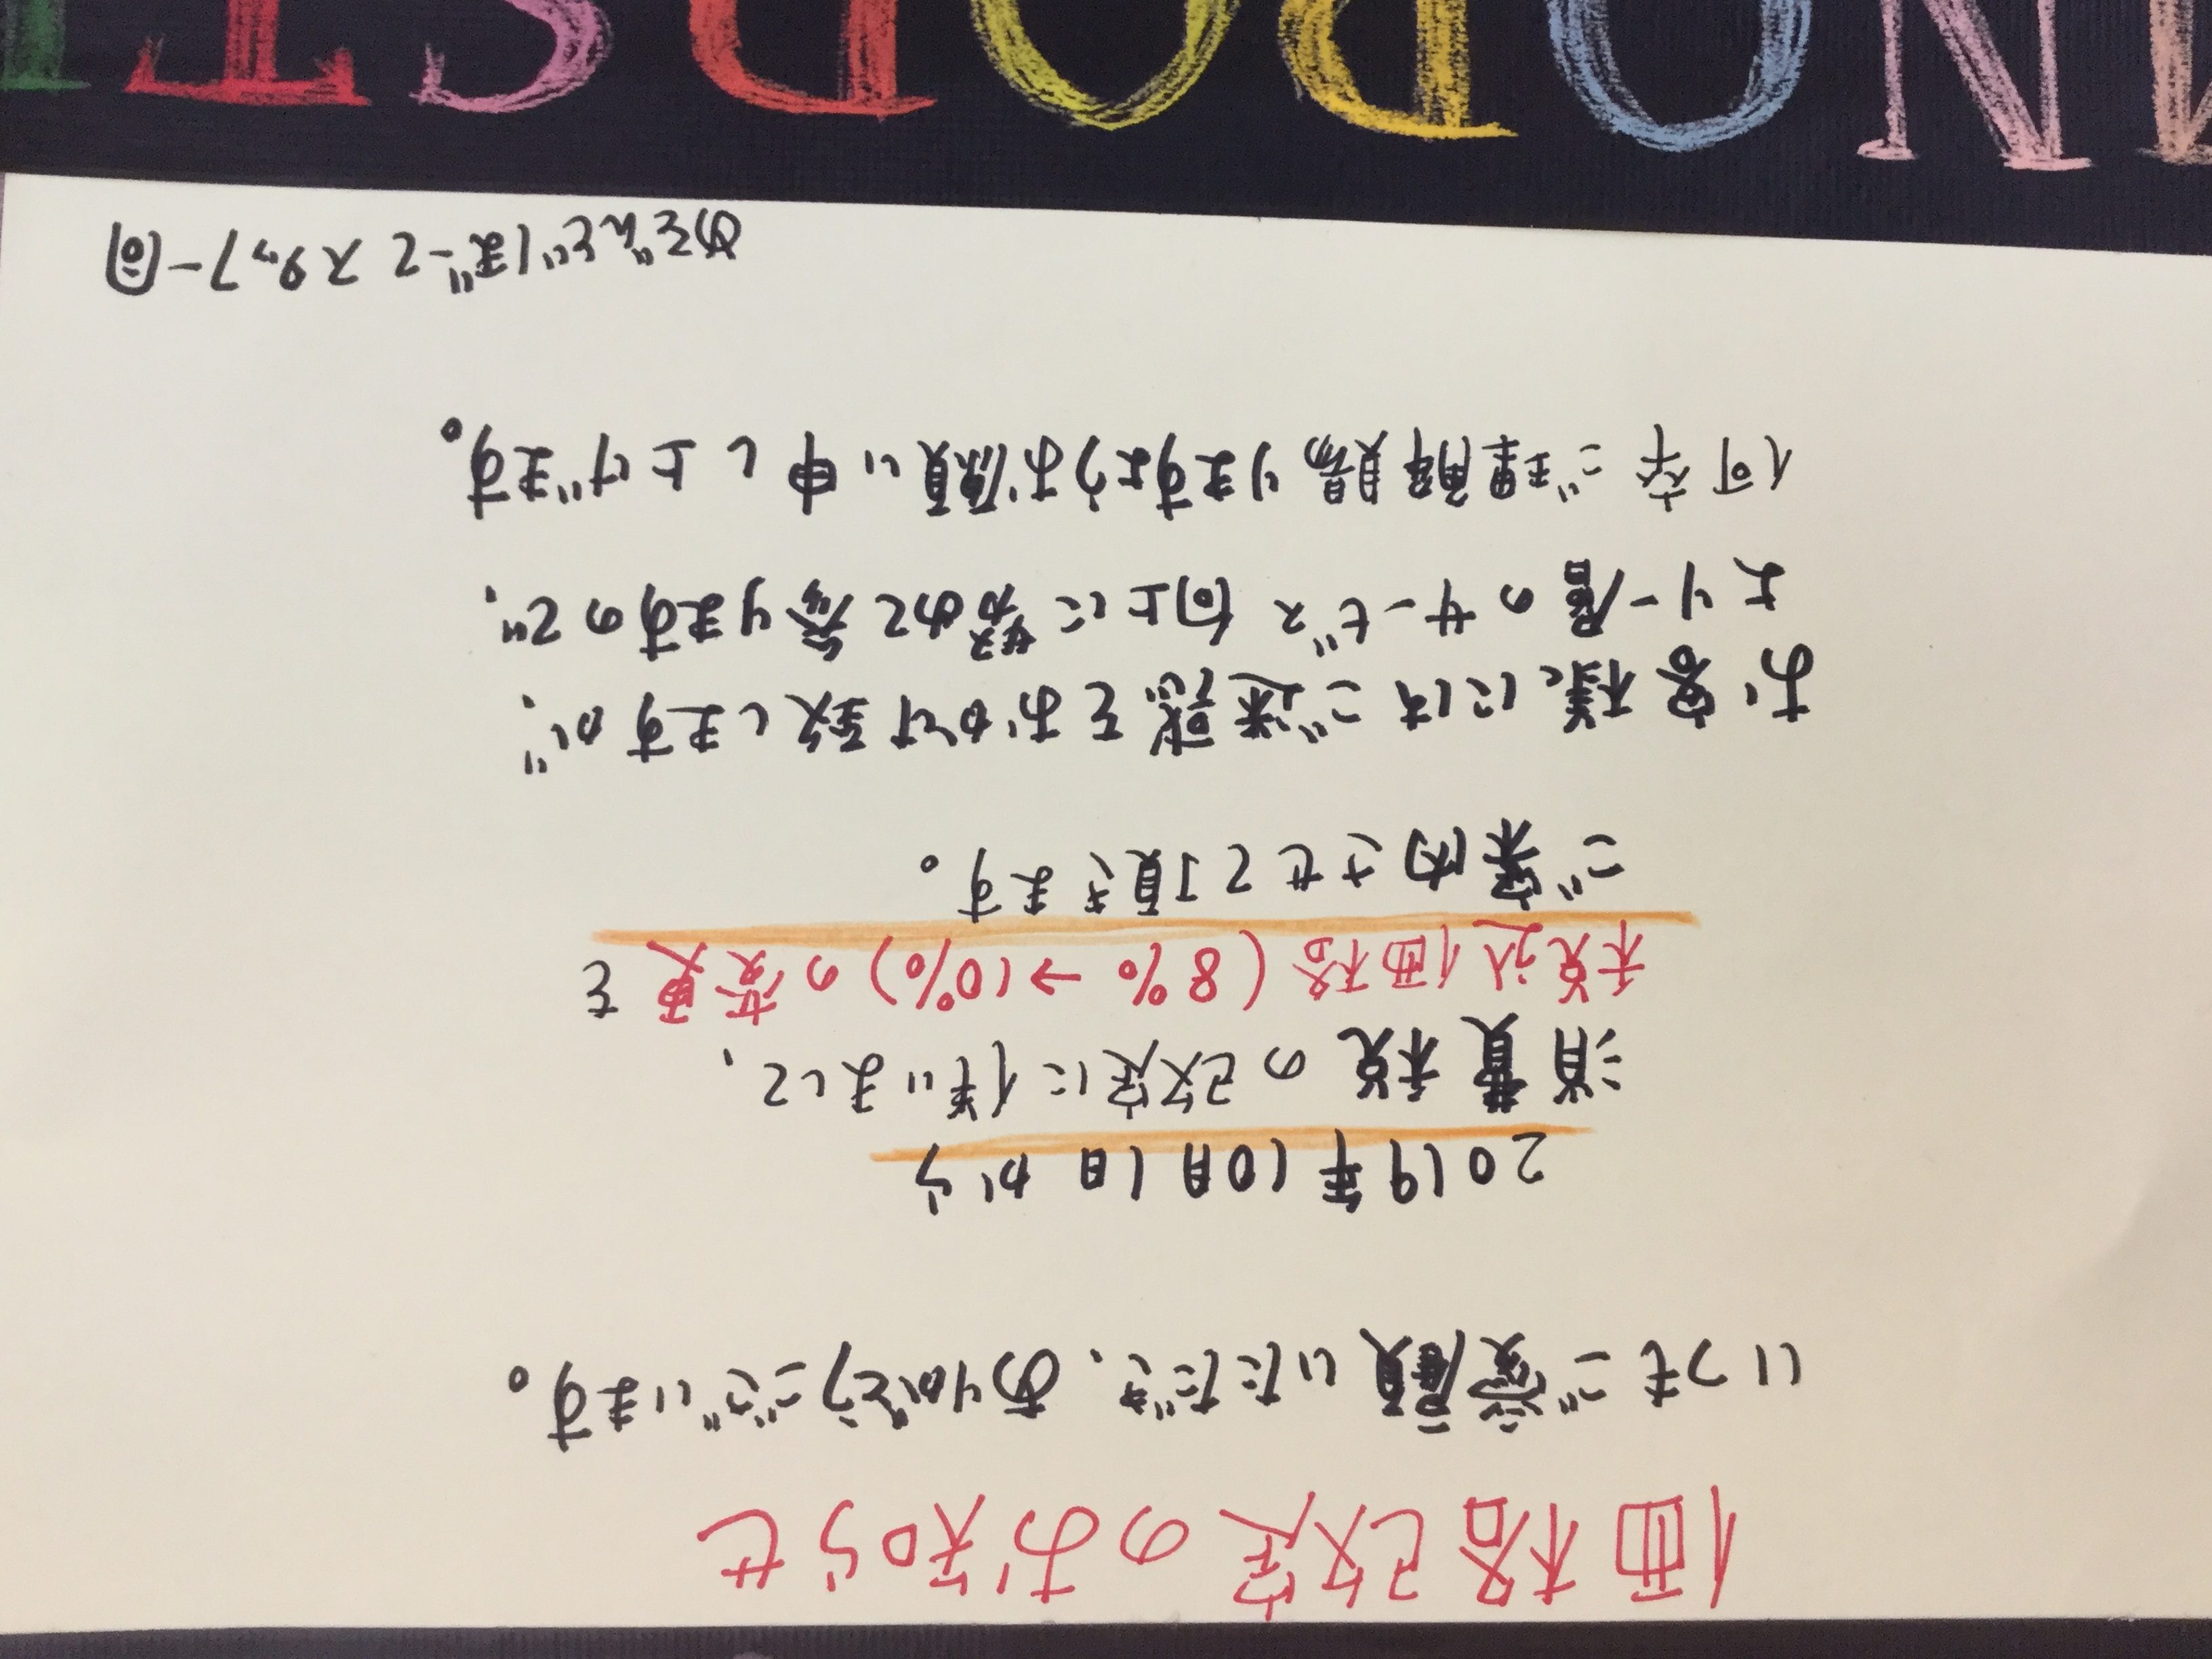 価格改定のお知らせ
いつもご愛顧いただき、ありがとうございます。
2019年10月1日から
消費税の改定に伴いまして、
税込価格(8%→10%)の変更を
ご案内させて頂きます。
お客様にはご迷惑をおかけ致しますが、
より一層のサービス向上に努めて参りますので、
何卒ご理解賜りますようお願い申し上げます。
めぞんどぼーて スタッフ一同